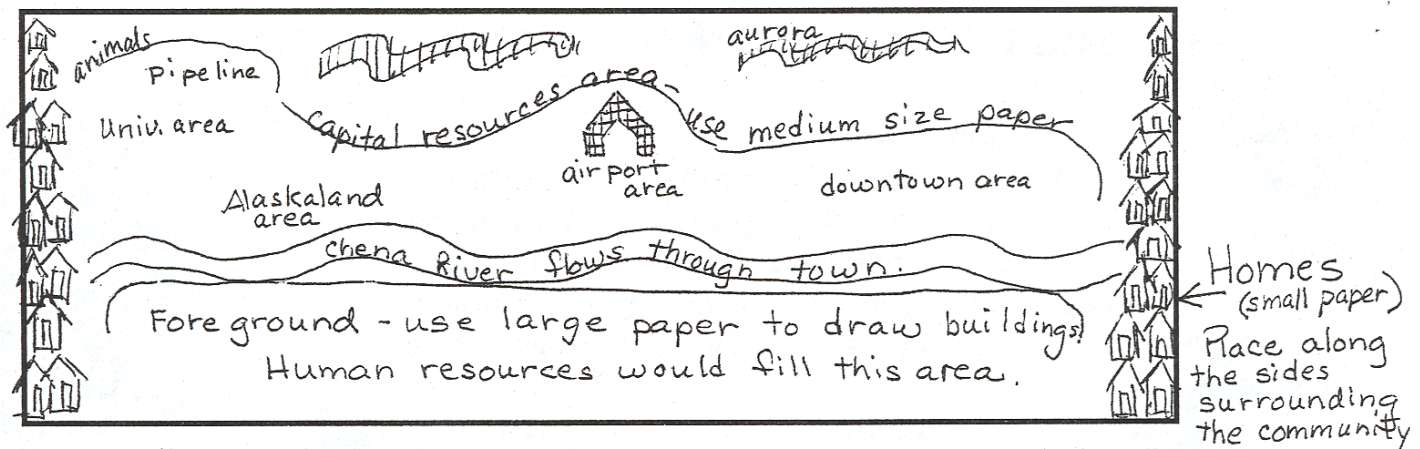 animals
aurora
pipeline
capital resources area - use medium size paper
Univ. area
airport
area
downtown area
Alaskaland
area
chena River flows through town.
Foreground - use large paper to draw buildings!
Human resources would fill this area.
Homes
(small paper)
Place along
the sides
surrounding
the community